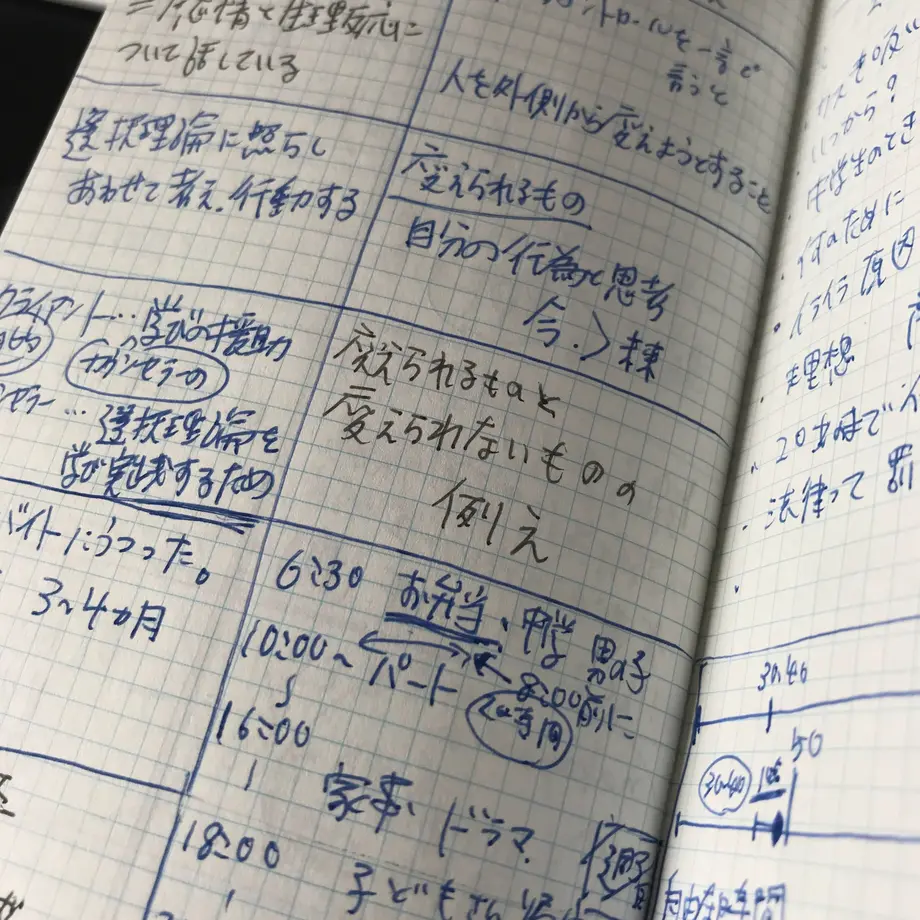 感情と生理反応に
ついて話している
選択理論に照らし
あわせて考え、行動する
クライアント…学びの援助
カウンセラーの
セラー…選択理論を
学び実践するため
バイトにうつった。
3~4か月
トロールを一言で
言うと
人を外側から変えようとすること
変えられるもの
自分の行為と思考
今.>未来
変えられるものと
変えられないものの
例え
6:30 お弁当、中学 男の子
10:00~ パート 8:00前に
16:00
家事 ドラマ
18:00
子どもさん
いつから?
中学生のとき
・何のために
・イライラ 原因
・理想
・20才まで
・法律って 罰
30.40
50
30.40